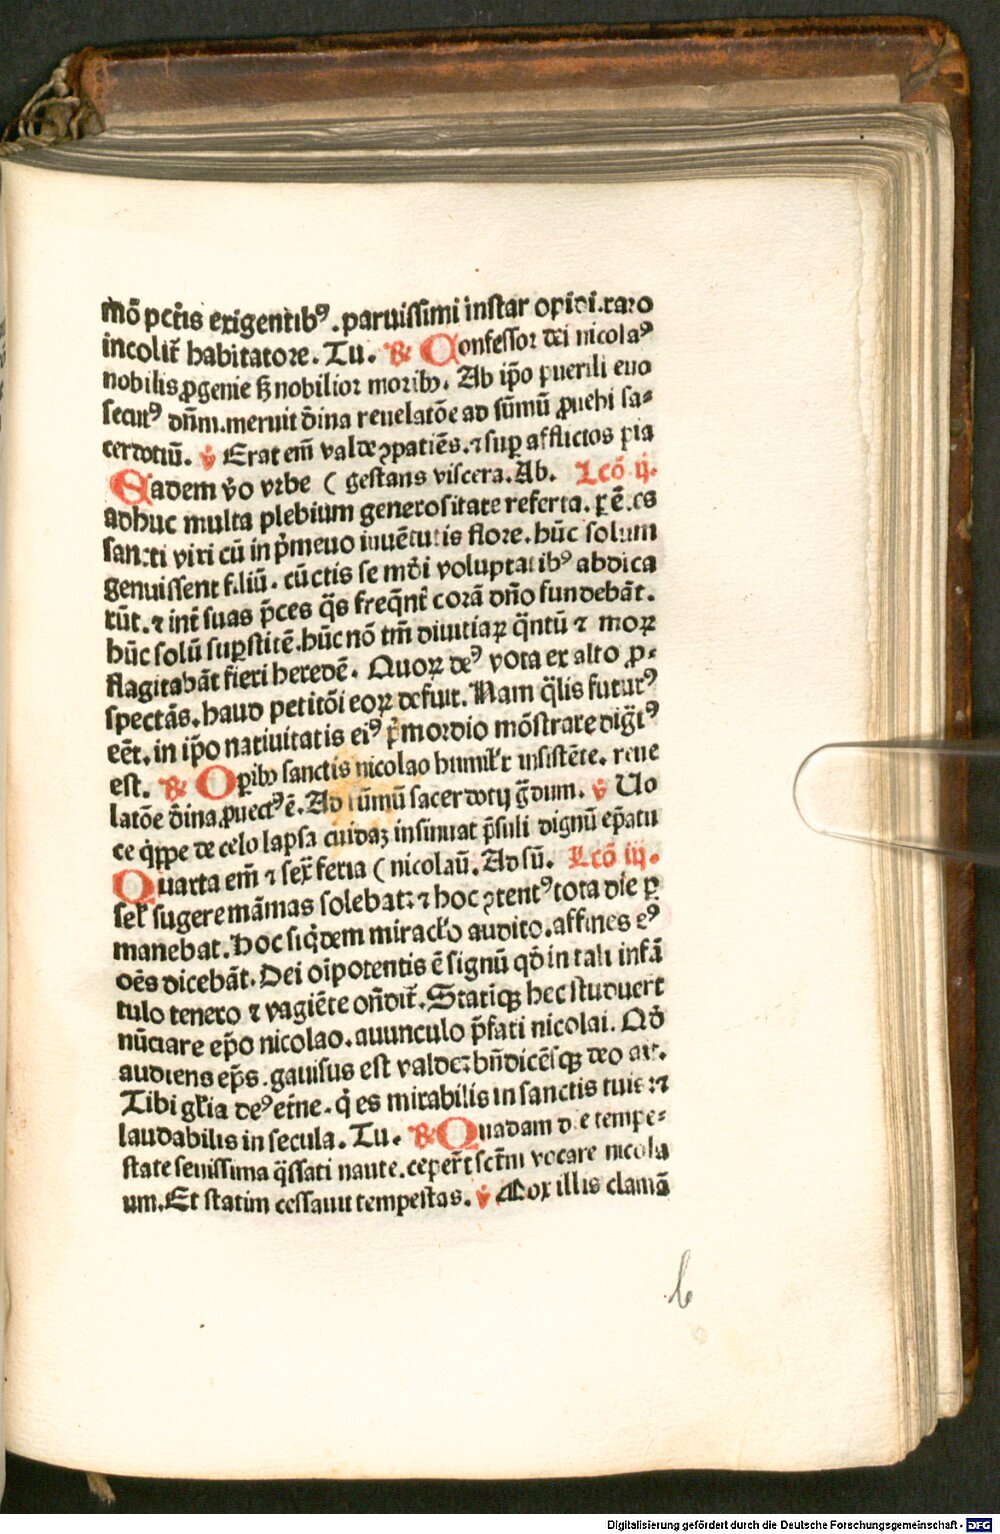 mõ pctis exigentibꝰ. paruissimi instar opidi. raro
incolit̃ habitatore. Tu. ℟ Confessor dei nicolaꝰ
nobilis ꝓgenie ß nobilior moribꝫ. Ab ip̃o puerili euo
secutꝰ dñm. meruit d̃ina reuelatõe ad sũmũ ꝓuehi sa⸗
cerdotiũ. ℣ Erat em̃ valde ꝯpatiẽs. ⁊ suꝑ afflictos pia
Eadem v̓o vrbe ( gestans viscera. Ab. Lcõ ij.
adhuc multa plebium generositate referta. ꝑẽtes
sancti viri cũ in p̓meuo iuuẽtutis flore. hũc solum
genuissent filiũ. cũctis se mũdi voluptatibꝰ abdica
rũt. ⁊ int̃ suas p̃ces q̃s freq̃nt̃ corã dño fundebãt.
hũc solũ suꝑstitẽ. hũc nõ tm̃ diuitiaꝝ q̃ntũ ⁊ moꝝ
flagitabãt fieri heredẽ. Quoꝝ deꝰ vota ex alto ꝓ⸗
spectãs. haud petitõi eoꝝ defuit. Nam q̃lis futurꝰ
eẽt. in ip̃o natiuitatis eiꝰ p̓mordio mõstrare dig̃tꝰ
est. ℟ Oꝑibꝫ sanctis nicolao humilr̃ insistẽte. reue
latõe d̃ina ꝓuectꝰ ẽ. Ad sũmũ sacerdotij g̃dum. ℣ Uo
ce q̓ꝑpe de celo lapsa cuidaꝫ insinuat p̃suli dignũ ep̃atu
Quarta em̃ ⁊ sex̃ feria ( nicolaũ. Ad sũ. Lcõ iij.
sel̃ sugere mãmas solebat: ⁊ hoc ꝯtentꝰ tota die ꝑ
manebat. Hoc siq̓dem miracl̃o audito. affines eꝰ
oẽs dicebãt. Dei oĩpotentis ẽ signũ qd̃ in tali infã
tulo tenero ⁊ vagiẽte oñdit̃. Statiqꝫ hec studuert̃
nũciare ep̃o nicolao. auunculo p̃fati nicolai. Qd̃
audiens ep̃s. gauisus est valde: bñdicẽsqꝫ deo ait.
Tibi gl̃ia deꝰ et̃ne. q̓ es mirabilis in sanctis tuis: ⁊
laudabilis in secula. Tu. ℟ Quadam die tempe⸗
state seuissima q̃ssati naute. ceper̃t sct̃m vocare nicola
um. Et statim cessauit tempestas. ℣ Mox illis clamã
b
Digitalisierung gefördert durch die Deutsche Forschungsgemeinschaft - DFG